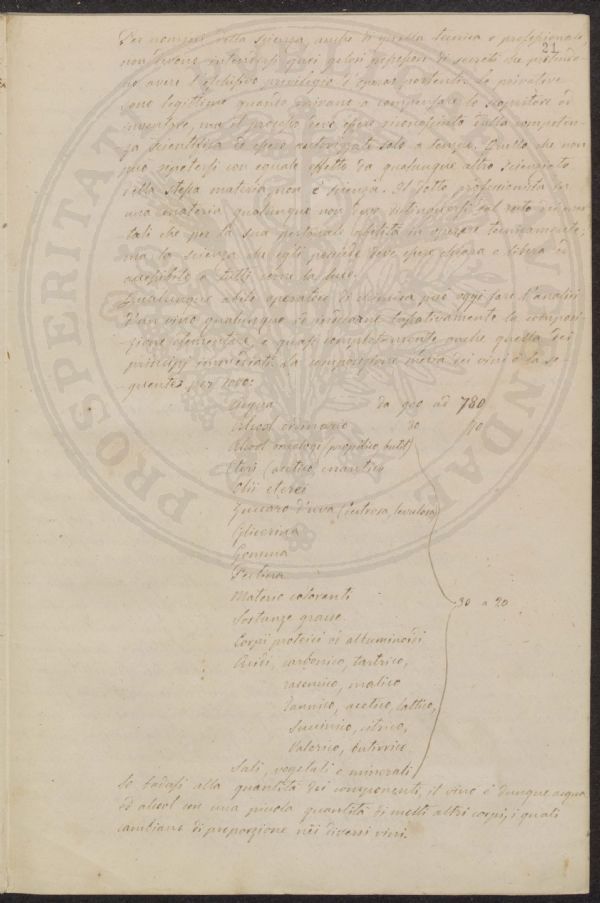 21
Per uomini della scienza, anche di quella tecnica e professionale,
non devono intendersi quei gelosi possessori di secreti che
no avere l'esclusivo privilegio d'operar portenti. Le privative
sono legittime quanto mirano a compensare lo scopritore od
inventore, ma il processo deve essere riconosciuto dalla competen-
za scientifica ed essere autorizzato solo a tempo. Quello che non
può ripetersi con eguale effetto da qualunque altro scienziato
della stessa materia, non è scienza. Il dotto professionista in
una materia qualunque non deve distinguersi dal resto dei
tali che per la sua personale abilità in operare tecnicamente;
ma la scienza che egli possiede deve essere chiara e libera ed
accessibile a tutti come la luce.
Qualunque abile operatore di chimica può oggi fare l'analisi
d'un vino qualunque ed indicarne la composi-
zione elementare, e quasi completamente anche quella dei
principj immediati. La composizione media dei vini è la se-
guente, per 1000:
Acqua da 900 ad 780
Alcool ordinario
Alcool omologhi (propilico, butil)
Eteri (acetico, enantico
Olii eterei
Zuccaro d'uva (destrosa, levulosa)
Glicerina
Gomma
Pectina
Materie coloranti
30 a 20
Sostanze grasse
Corpi proteici ed albuminoidi
Acidi, carbonico, tartrico,
racemico, malico
Tannico, acetico, lattico,
Succinico, citrico,
Valerico, butirrico
Sali, vegetali e minerali
Se badasi alla quantità dei componenti, il vino è dunque acqua
ed alcool con una piccola quantità di molti altri corpi, i quali
cambiano di proporzione nei diversi vini.
PROSPERITATI